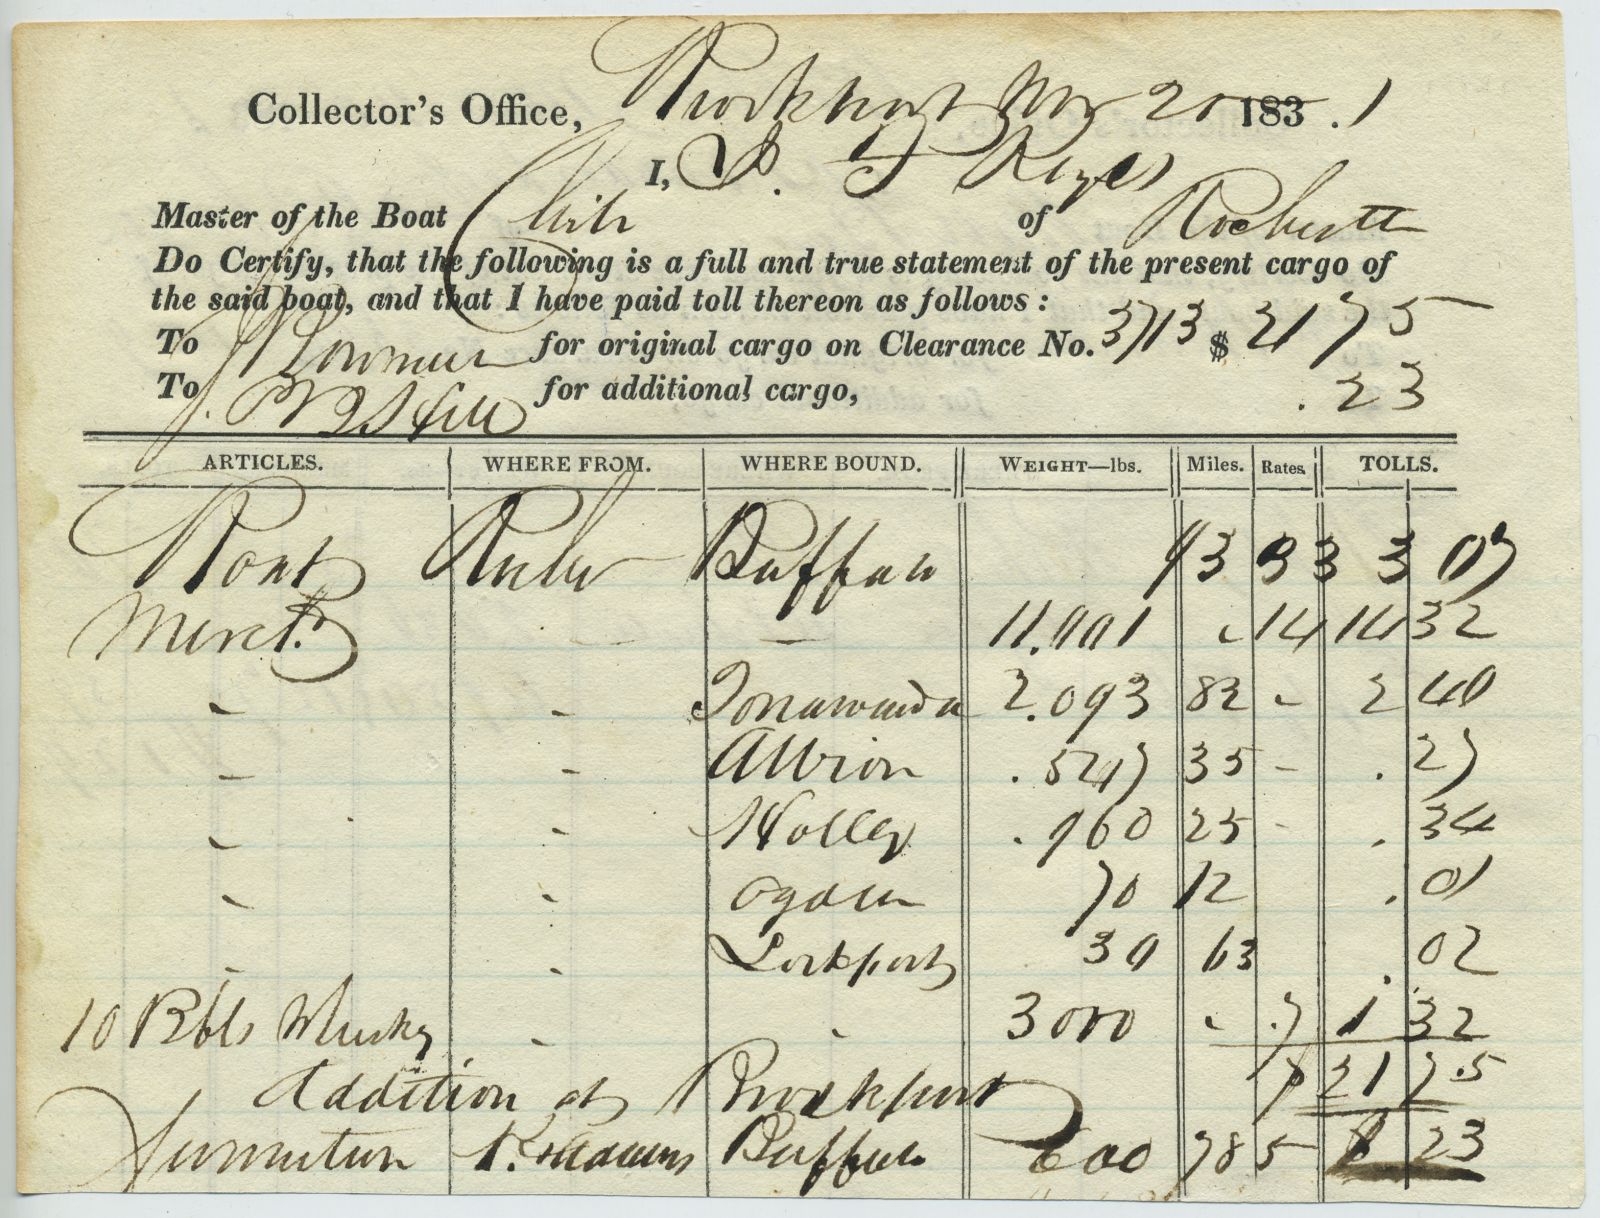 Collector's Office, Brockport Nov 20 183.1
I, D. F. Royes
Master of the Boat Chili of Rochester
Do Certify, that the following is a full and true statement of the present cargo of
the said boat, and that I have paid toll thereon as follows:
To J Bowman for original cargo on Clearance No. 3713 $ 21 75
To J. for additional cargo, .23
ARTICLES. WHERE FROM. WHERE BOUND. WEIGHT—lbs. Miles. Rates. TOLLS.
Boat Buffalo 93 33 3 07
Merct. - - 11.001 - 14 14 32
- - Tonawanda 2.093 82 - 2 40
- - Albion .547 35 - .27
- - Holley .960 25 - .34
- - Ogden 70 12 .01
- - Lockport 30 63 .02
10 Bbls Whisky - - 3000 - .7 1 32
$ 21 75
Addition at Brockport
Furniture Buffalo 600 78 5 $ 23